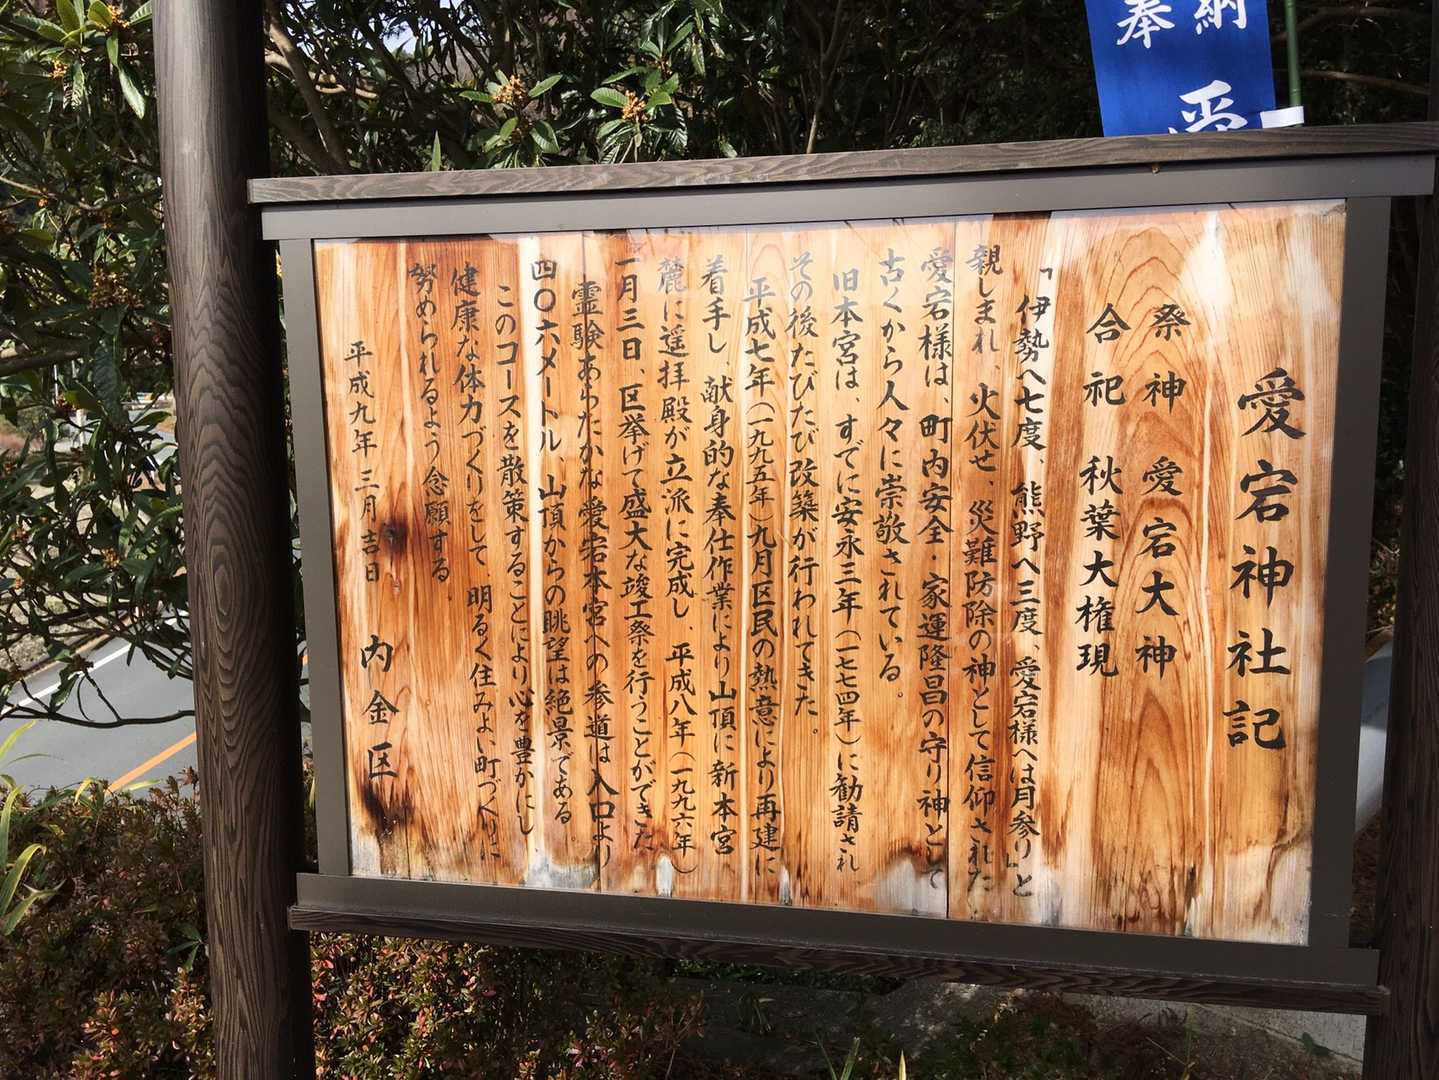 奉納
愛
愛宕神社記
祭神　愛宕大神
合祀　秋葉大権現
「伊勢へ七度、熊野へ三度、愛宕様へは月参り」と
親しまれ、火伏せ、災難防除の神として信仰された
愛宕様は、町内安全・家運隆昌の守り神として
古くから人々に崇敬されている。
旧本宮は、すでに安永三年（一七七四年）に勧請され
その後たびたび改築が行われてきた。
平成七年（一九九五年）九月区民の熱意により再建に
着手し、献身的な奉仕作業により山頂に新本宮、
麓に遥拝殿が立派に完成し、平成八年（一九九六年）
一月三日、区挙げて盛大な竣工祭を行うことができた
霊験あらたかな愛宕本宮への参道は入口より
四〇六メートル、山頂からの眺望は絶景である
このコースを散策することにより心を豊かにし
健康な体力づくりをして　明るく住みよい町づくりに
努められるよう念願する．
平成九年三月吉日　内金区